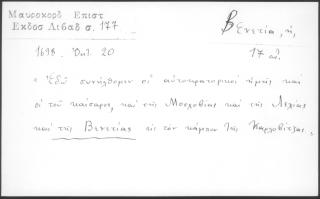 Μαυροκορδ Επιστ
Εκδοσ Λιβαδ σ. 177
Βενετία, ἡ,
1698. Ὀκτ. 20
17 αἰ.
« Ἐδῶ συνήχθημεν οἱ αὐτοκρατορικοὶ ἡμεῖς καὶ
οἱ τοῦ καίσαρος, καὶ τῆς Μοσχοβίας καὶ τῆς Λεχίας
καὶ τῆς Βενετίας εἰς τὸν κάμπον τῆς Καρλοβίτζας.